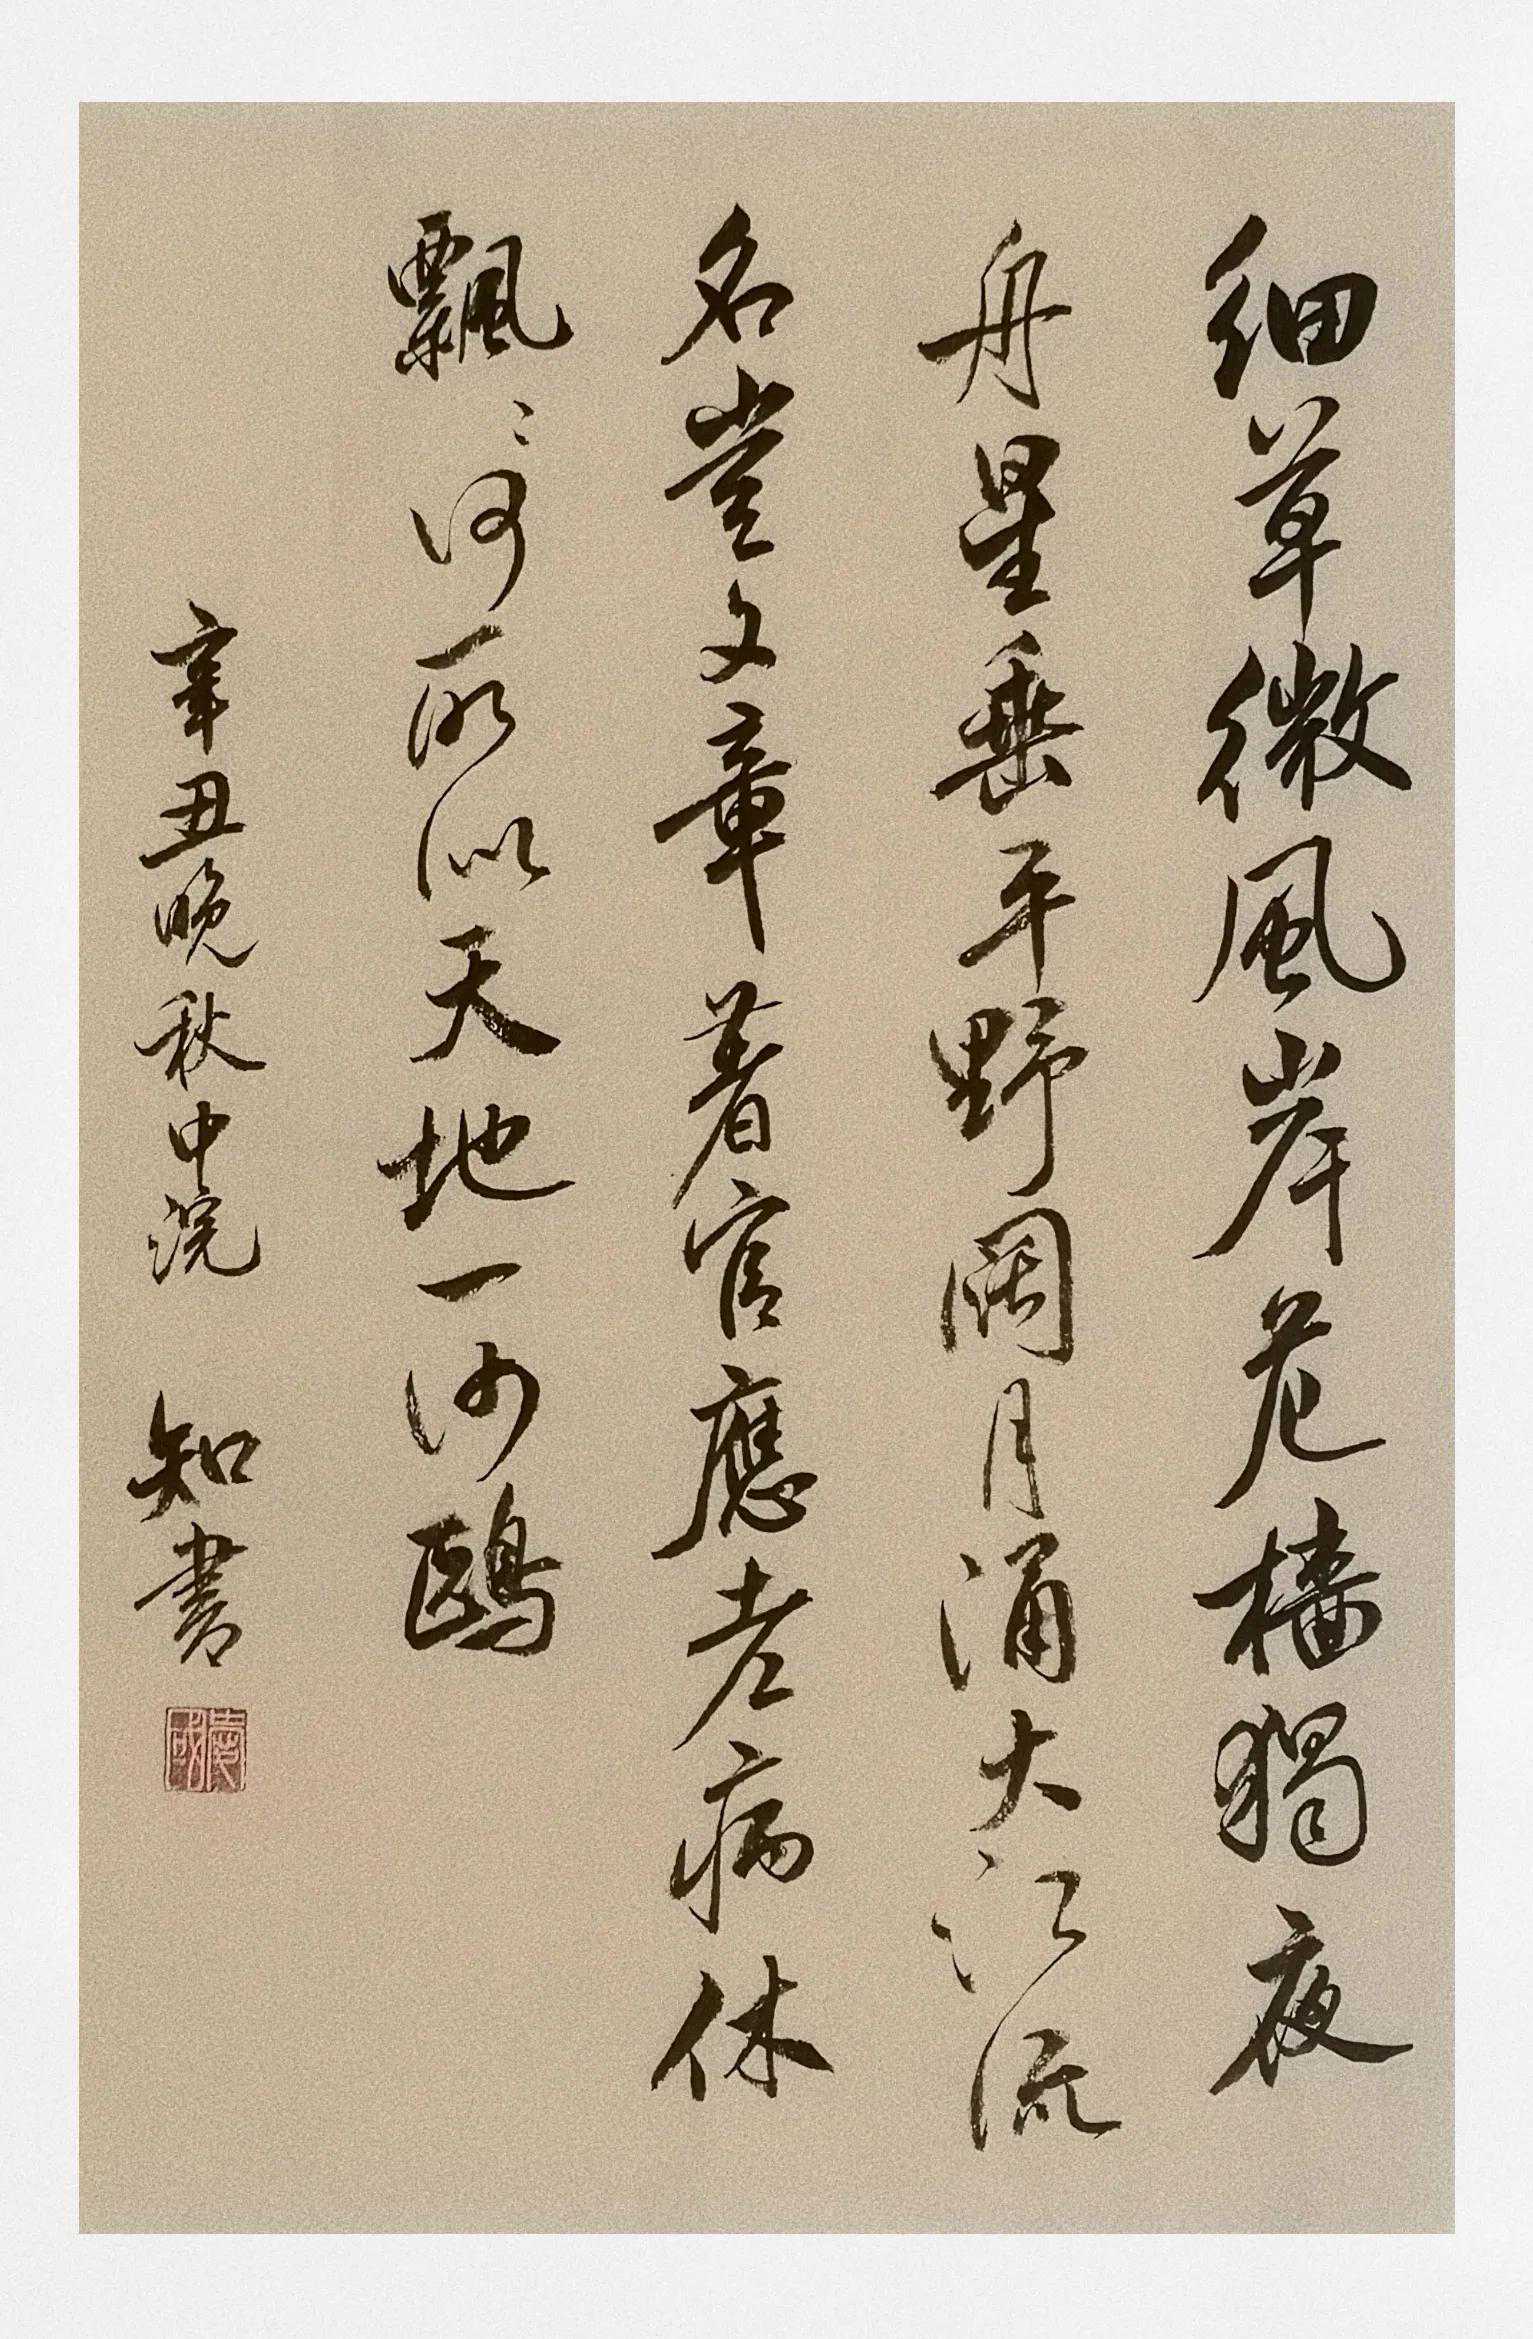 细草微風岸危檣獨夜
舟星垂平野闊月涌大江流
名豈文章著官應老病休
飄〻何所似天地一沙鷗
辛丑晚秋中浣 知書